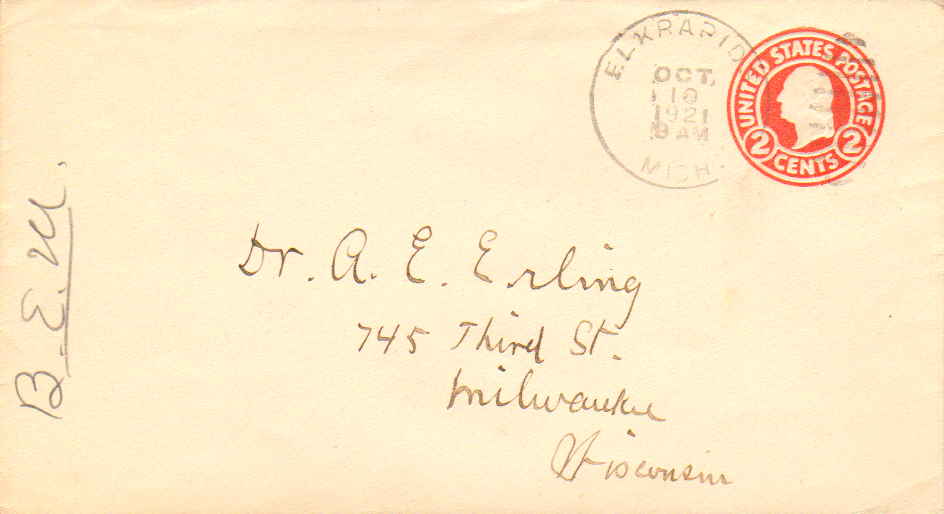 ELK RAPID
OCT.
10
1921
9 AM
MICH.
UNITED STATES POSTAGE
2 CENTS 2
Dr. A. E. Erling
745 Third St.
Milwaukee
Wisconsin
B. E. M.